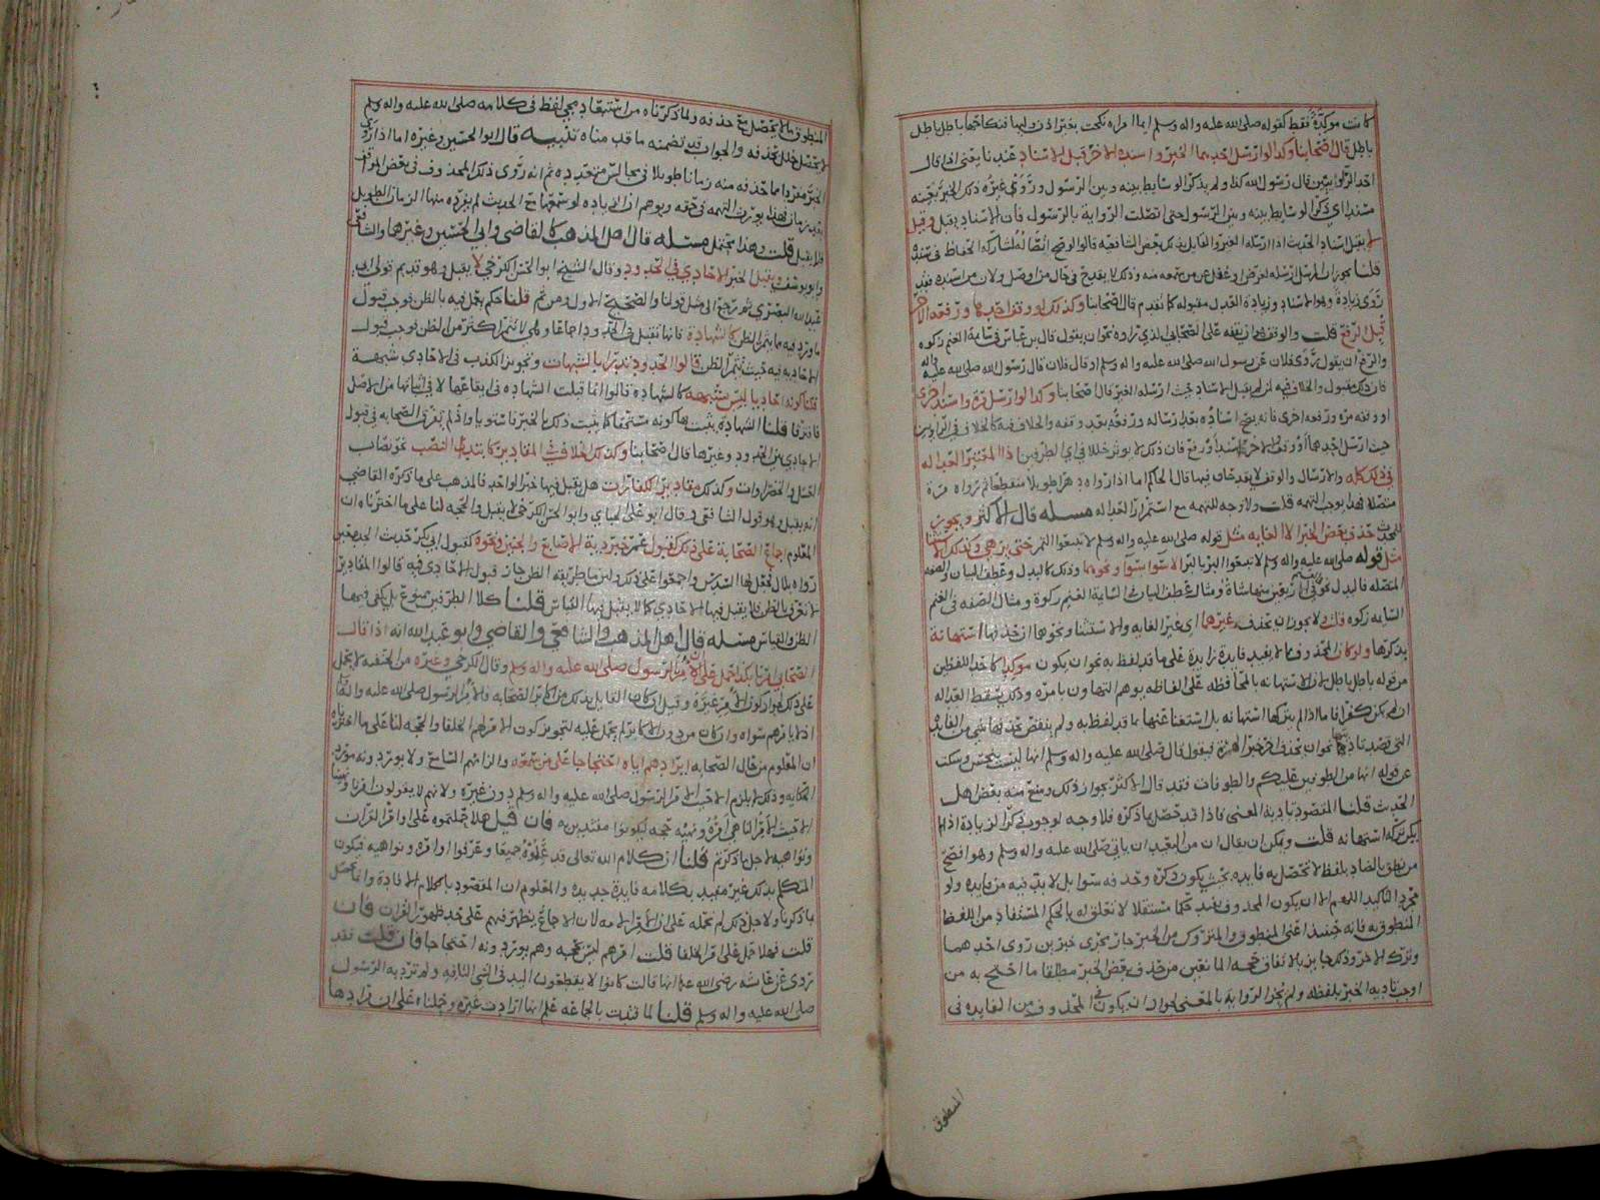 كانت موكدة فقط كقوله صلى الله عليه واله وسلم ايما امراه نكحت بغير اذن وليها فنكاحها باطل باطل
باطل قال اصحابنا وكذا لو ارسل احدهما الخبر واسنده الاخر قبل الاسناد عندنا يعني اذا قال
احد الراويين قال رسول الله كذا ولم يذكر الوسايط بينه وبين الرسول وروى غيره ذلك الخبر بعينه
مسندا اي ذكر الوسايط بينه وبين الرسول حتى اتصلت الرواية بالرسول فان الاسناد يقبل وقيل
لا يقبل اسناد الحديث اذا ارسله
قلنا يجوز ان المرسل ارسله لغرض او غفل عن من سمعه منه وذلك لا يقدح في حال من
روى زيادة وهو الاسناد وزيادة العدل مقبوله كما تقدم قال اصحابنا وكذلك لو وقف احدهما ورفعه الاخر
قبل الرفع قلت والوقف هو ان يقفه على الصحابي الذي رواه نحو ان يقول قال ابن عباس في سايمة الغنم زكوه
والرفع ان يقول روى فلان عن رسول الله صلى الله عليه واله وسلم او قال فلان قال رسول الله صلى الله عليه واله
فان ذلك مقبول والخلاف فيه قال اصحابنا وكذا لو ارسل مرة واسند اخرى
او وقفه مره ورفعه اخرى فانه يصح اسناده بعد ارساله ورفعه بعد وقفه والخلاف فيه كالخلاف في الراويين
حيث ارسل احدهما او وقف الاخر اسند او رفع فان ذلك لا يوثر خللا في اي الطرفين اذا المعتبر العداله
في ذلك كله والارسال والوقف لا يقدحان فيها قال الحاكم اما اذا رواه دهرا طويلا منقطعا ثم رواه مرة
متصلا فهذا يوجب التهمه قلت ولا وجه للتهمه مع استمرار العداله مسله قال الاكثر ويجوز
للمحدث حذف بعض الخبر الا الغايه مثل قوله صلى الله عليه واله وسلم لا تبيعوا الثمر حتى يزهي وكذلك الاستثنا
مثل قوله صلى الله عليه واله وسلم لا تبيعوا البر بالبر الا سوا سوا ونحوهما وذلك كالبدل وعطف البيان والصفه
السايمه زكوه فان ذلك لا يجوز ان يحذف وغيرها اي غير الغايه والاستثنا ونحوها ان حذفها استهانة
بذكرها ولو كان المحذوف لا يفيد فايدة زايدة على ما قد لفظ به نحو ان يكون موكدا كاحد اللفظين
من قوله باطل باطل لان الاستهانه بالمحافظه على الفاظه يوهم التهاون بامره وذلك يسقط العداله
ان لم يكن كفرا فاما اذا لم يتركها استهانه بل استغنا عنها بما قد لفظ به ولم ينقص بحذفها شي من الفايدة
التي قصد تاديتها نحو ان يحذف اخر خبر الهرة فيقول قال صلى الله عليه واله وسلم انها ليست بنجس ويسكت
عن قوله انها من الطوافين عليكم والطوافات فقد قال الاكثر بجواز ذلك ومنع منه بعض اهل
الحديث قلنا المقصود تادية المعنى فاذا قد حصل بما ذكره فلا وجه لوجوب ذكر الزيادة اذا لم
يكن تركه استهانه قلت ويمكن ان يقال ان من البعيد ان ياتي صلى الله عليه واله وسلم وهو افصح
من نطق بالضاد بلفظ لا تحصل به فايده بحيث يكون ذكره وحذفه سوا بل لا بد فيه من فايده ولو
مجرد التاكيد اللهم الا ان يكون المحذوف يفيد حكما مستقلا لا تعلق له بالحكم المستفاد من اللفظ
المنطوق به فانه حينئذ اغنى المنطوق والمتروك من الخبر جاز مجرى خبرين روى احدهما
وترك الاخر وذلك جايز بالاتفاق حجه المانعين من حذف بعض الخبر مطلقا ما احتج به من
اوجب تاديه الخبر بلفظه ولم يجز الرواية بالمعنى لجواز ان يكون في المحذوف من الفايده في
المنطوق
المنطوق ما لا يحصل مع حذفه ولما ذكرناه من استبعاد مجي لفظ في كلامه صلى الله عليه واله وسلم
لا يحصل خلل بحذفه والجواب قد تضمنه ما قدمناه تنبيه قال ابو الحسين وغيره اما اذا روى
الخبر مفردا مما حذفه منه زمانا طويلا في مجالس متعدده ثم انه روى ذلك المحذوف في بعض المواقف
بعد زمان فهذا يورث التهمه في حقه ويوهم ان الزياده لو سمعها مع الحديث لم يفرده منها الزمان الطويل
فلا يقبل قلت وهذا محتمل مسله قال اهل المذهب كالقاضي وابي الحسين وغيرها والشافعي
وابو يوسف ويقبل الخبر الاحادي في الحدود وقال الشيخ ابو الحسن الكرخي لا يقبل وهو قديم قولي ابي
عبد الله البصري ثم رجع الى مثل قولنا والصحيح الاول ومن ثم قلنا حكم يعمل فيه بالظن فوجب قبول
ما ورد فيه مما يثمر الظن كالشهادة فانها تقبل في الحدود اجماعا وهي لا تثمر اكثر من الظن فوجب قبول
الاحادي فيه حيث يثمر الظن قالوا الحدود تدرا بالشبهات وتجويز الكذب في الاحادي شبهة
قلنا كونه احاديا ليس بشبهة كالشهاده قالوا انما قبلت الشهاده في ايقاعها لا في اثباتها من الاصل
فافترقا قلنا الشهادة يثبت بها كونه مستحقا كما يثبت ذلك بالخبر فاستويا واذ لم يفرق الصحابه في قبول
الاحادي بين الحدود وغيرها قال اصحابنا وكذلك الخلاف في المقادير كابتدا النصب نحو نصاب
العسل والخضراوات وكذلك مقادير الكفارات هل يقبل فيها خبر الواحد فالمذهب على ما ذكره القاضي
انه يقبل وهو قول الشافعي وقال ابو علي الجباي وابو الحسن الكرخي لا يقبل والحجه لنا على ما اخترناه ان
المعلوم اجماع الصحابة على ذلك كقبول عمر خبر دية الاصابع والجنين ونحوه كقبول ابي بكر حديث الجده حين
رواه بلال فجعل لها السدس واجمعوا على ذلك ولان ما طريقه الظن جاز قبول الاحادي فيه قالوا المقادير
لا تعرف بالظن فلا يقبل فيها الاحادي كما لا يقبل فيها القياس قلنا كلا الطرفين ممنوع بل يكفي فيهما
الظن والقياس مسله قال اهل المذهب والشافعي والقاضي وابو عبد الله انه اذا قال
الصحابي امرنا بكذا حمل على ان الامر الرسول صلى الله عليه واله وسلم وقال الكرخي وغيره من الحنفيه لا يحمل
على ذلك لجواز كون الامر غيره وقيل ان كان القايل بذلك من اكابر الصحابه فالامر الرسول صلى الله عليه واله
اذ لا يامرهم سواه وان كان من دون الاكابر لم يحمل عليه لتجويز كون الامر لهم الخلفا والحجه لنا على ما اخترناه
ان المعلوم من حال الصحابه ايرادهم اياه احتجاجا على من سمعه والزامهم السامع ولا يوردونه مورد
الحكايه وذلك لا يلزم الا حيث الامر الرسول صلى الله عليه واله وسلم دون غيره ولانهم لا يقولون امرنا ونهينا
الا حيث الامر الناهي امره ونهيه حجه ليكونوا مقتدين به فان قيل هلا حملتموه على اوامر القران
ونواهيه لاجل ما ذكرتم قلنا ان كلام الله تعالى قد علموه جميعا وعرفوا اوامره ونواهيه فيكون
المتكلم بذلك غير مفيد بكلامه فايدة جديده والمعلوم ان المقصود بالكلام الافادة وانما تحصل
بما ذكرنا ولاجل ذلك لم نحمله على ان الامر الامه لان الاجماع يظهر فيهم على حد ظهور القران فان
قلت فهلا حمل على امر الخلفا قلت امرهم ليس بحجه وهم يوردونه احتجاجا فان قلت فقد
روى عن عايشه رضي الله عنها انها قالت كانوا لا يقطعون اليد في الشي التافه ولم ترد به الرسول
صلى الله عليه واله وسلم قلنا لما قيدت بالجماعه علم انها ارادت غيره وحملناه على ان مرادها